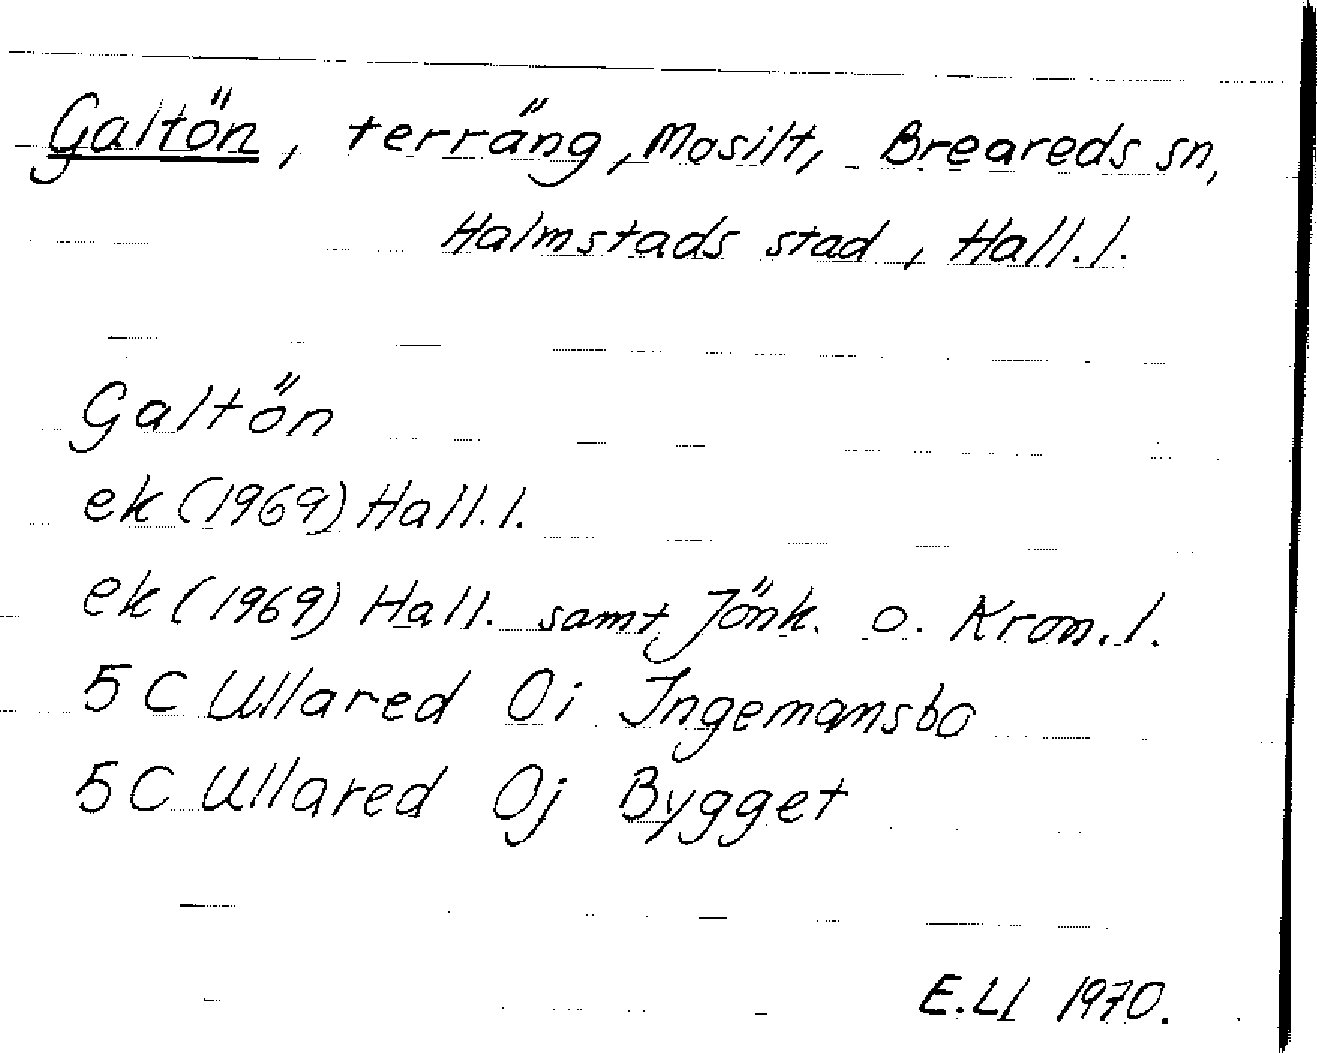 Galtön, terräng, Mosilt, Breareds sn,
Halmstads stad, Hall.l.
Galtön
ek (1969) Hall.l.
ek (1969) Hall. samt Jönk. o. Kron.l.
5C Ullared Oi Ingemansbo
5C Ullared Oj Bygget
E.Ll 1970.